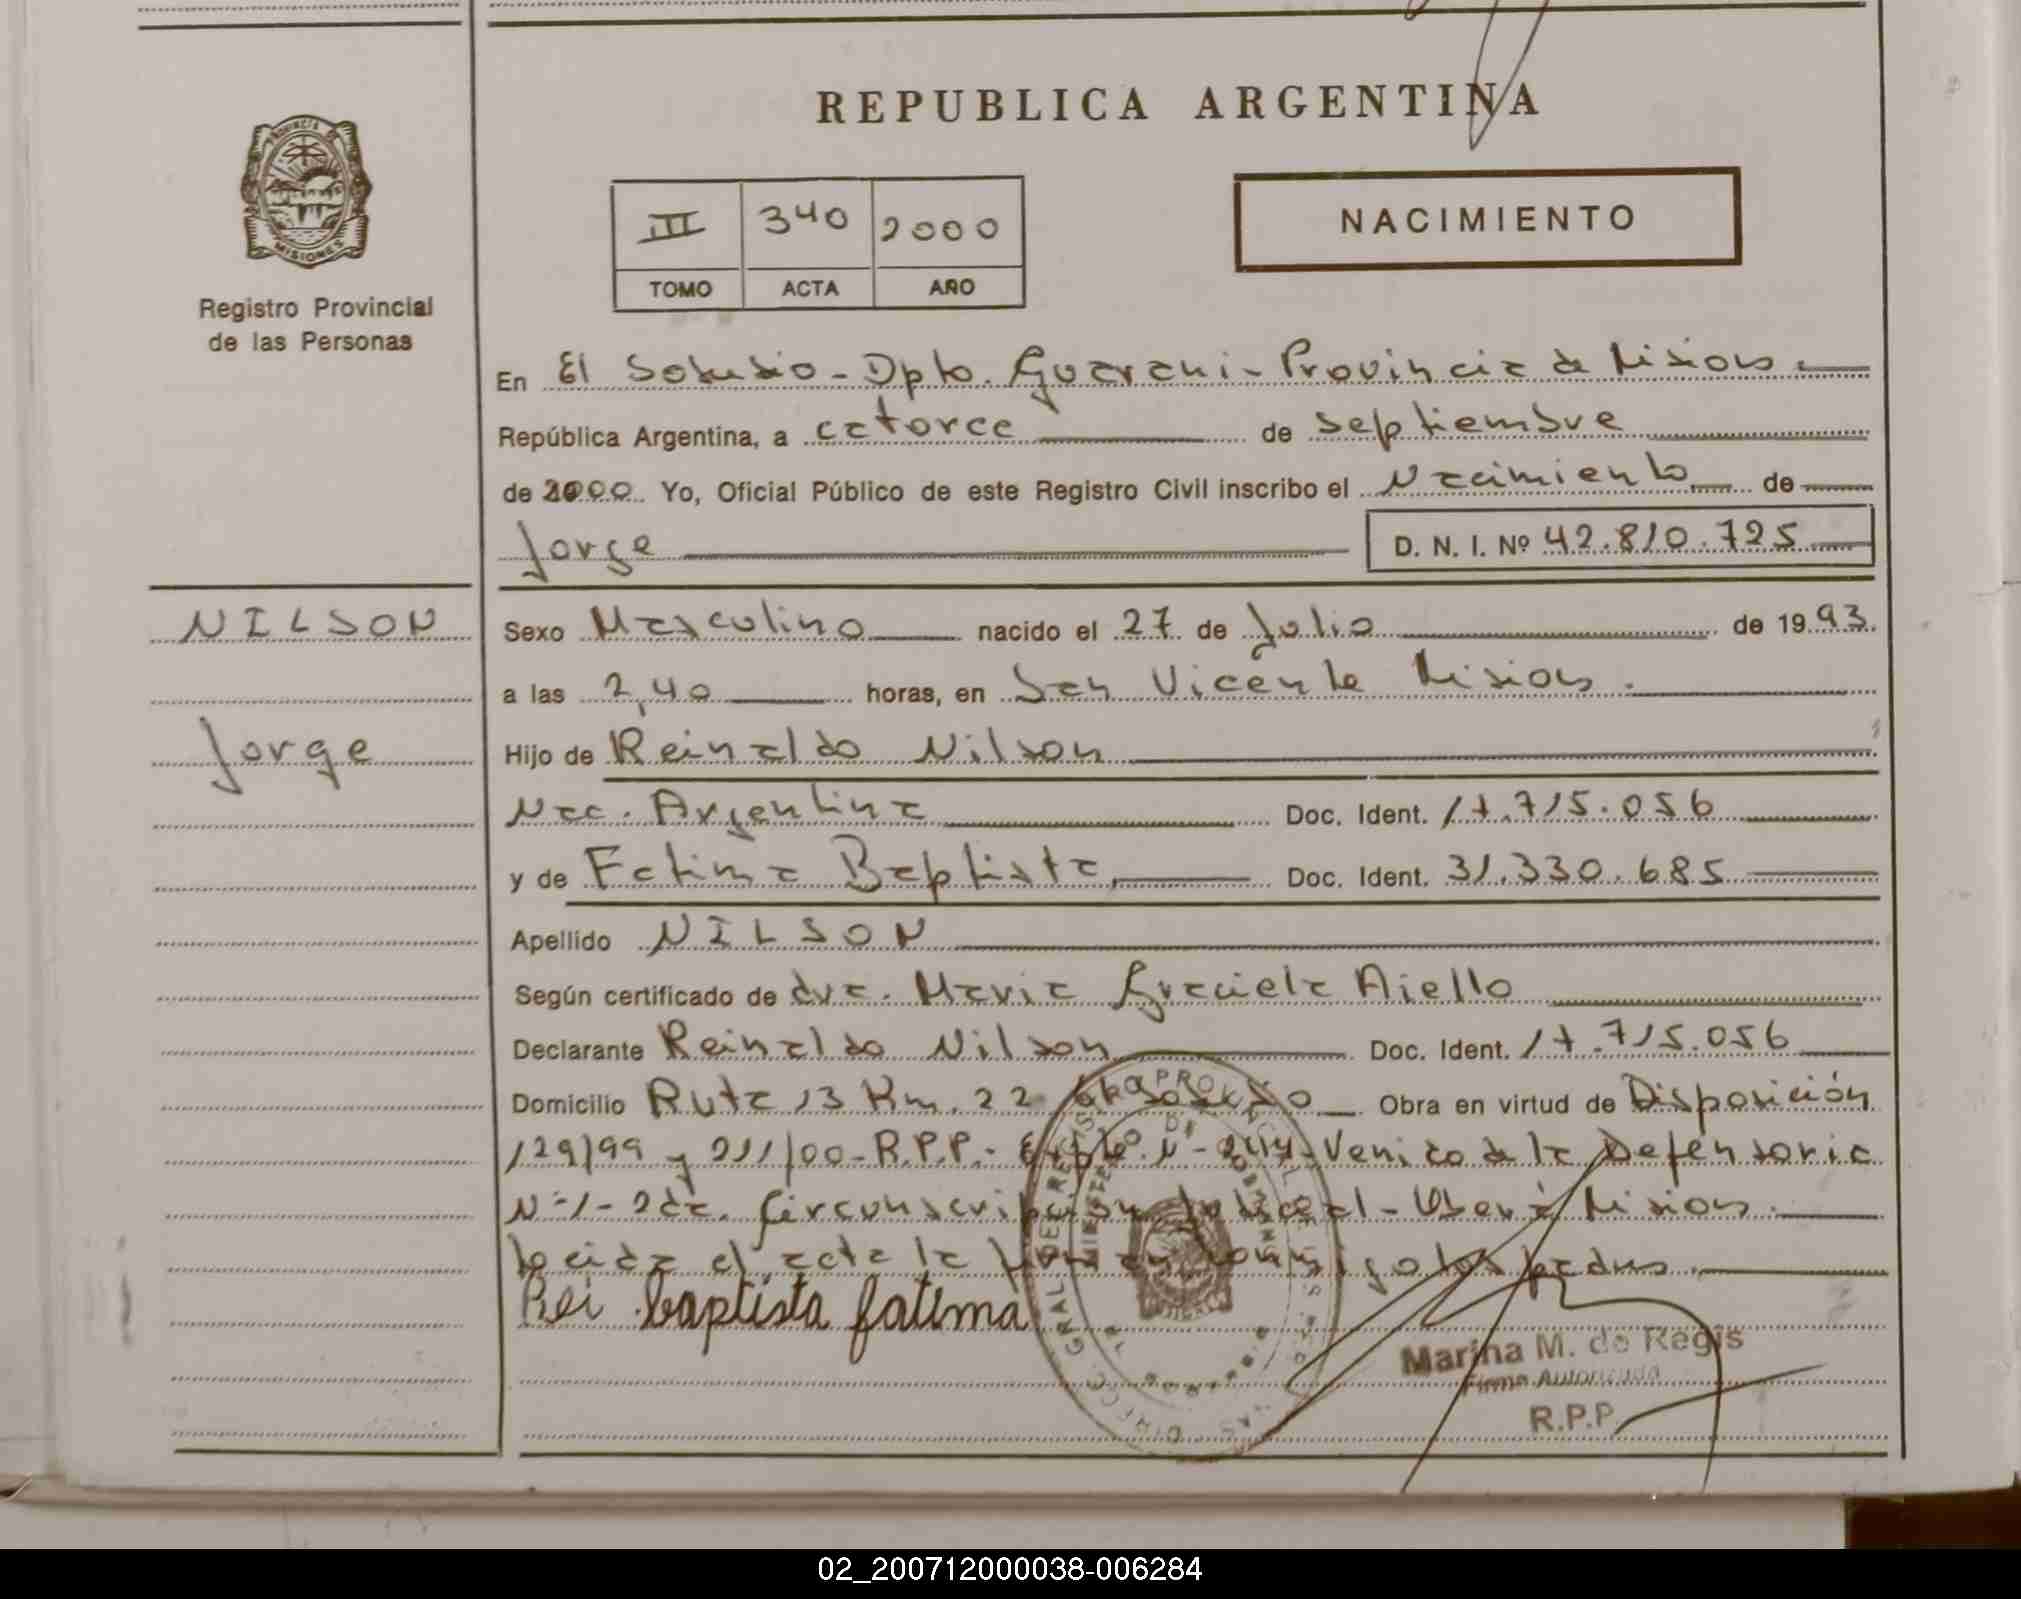 REPUBLICA ARGENTINA
PROVINCIA DE
MISIONES
Registro Provincial
de las Personas
III 340 2000
TOMO ACTA AÑO
NACIMIENTO
En El Soberbio - Dpto. Guarani - Provincia de Misiones.
República Argentina, a catorce de septiembre
de 2000 Yo, Oficial Público de este Registro Civil inscribo el Nacimiento de
Jorge D. N. I. Nº 42.810.725
NILSON
Jorge
Sexo Masculino nacido el 27 de Julio de 1993.
a las 2,40 horas, en San Vicente Misiones.
Hijo de Reinaldo Nilson
Nac. Argentina Doc. Ident. 17.715.056
y de Fatima Baptista, Doc. Ident. 31.330.685
Apellido NILSON
Según certificado de dra. Maria Graciela Aiello
Declarante Reinaldo Nilson Doc. Ident. 17.715.056
Domicilio Ruta 13 Km. 22 Obra en virtud de Disposición
129/99 y 211/00 - R.P.P. - Expte. Nº Venido de la Defensoria
Nº 1 - 2da. Circunscripción Judicial - Oberá Misiones.
Leida el acta la firman conmigo los padres.
Rei baptista fatima
Marina M. de Regis
Firma Autorizada
R.P.P.
02_200712000038-006284